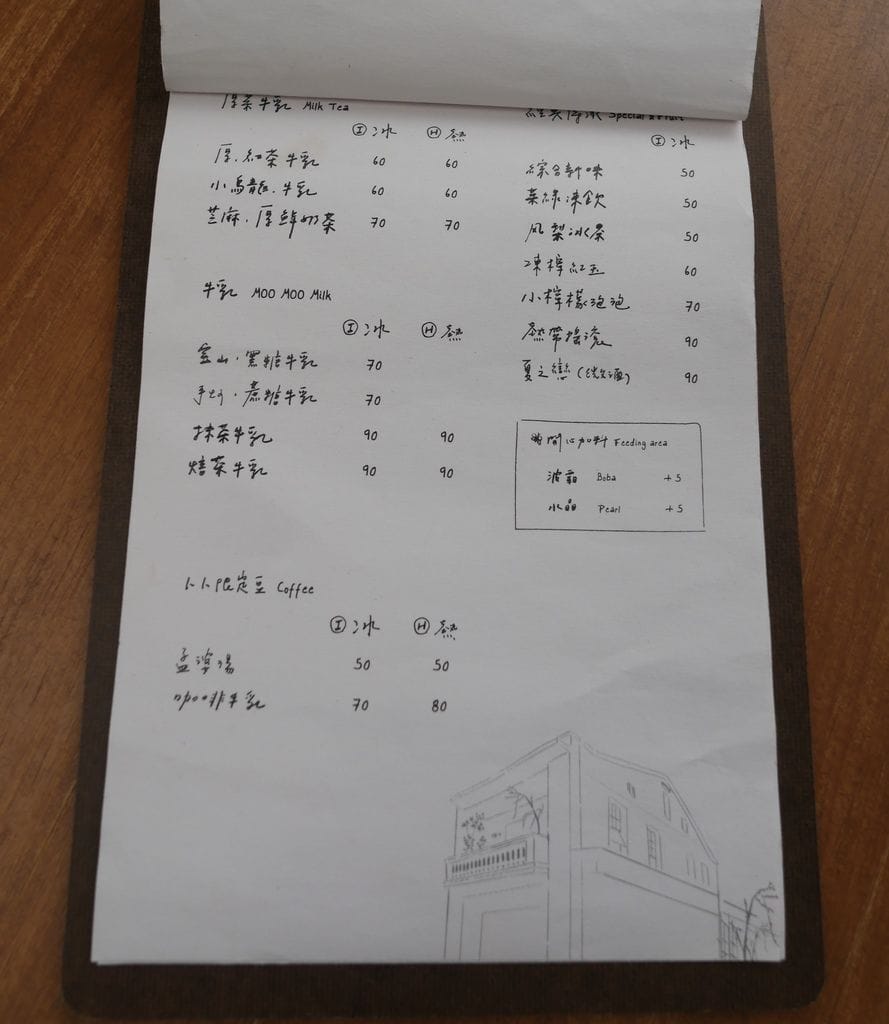 厚茶牛乳 Milk Tea
Ⓘ 冰 Ⓗ 熱
厚．紅茶牛乳 60 60
小烏龍．牛乳 60 60
芝麻．厚鮮奶茶 70 70
牛乳 Moo Moo Milk
Ⓘ 冰 Ⓗ 熱
黑糖牛乳 70
手炒．蔗糖牛乳 70
抹茶牛乳 90 90
焙茶牛乳 90 90
卜卜限定豆 Coffee
Ⓘ 冰 Ⓗ 熱
孟淳湯 50 50
咖啡牛乳 70 80
Special & Fruit
Ⓘ 冰
綜合新味 50
菜綠凍飲 50
風梨冰茶 50
凍檸紅玉 60
小檸檬泡泡 70
熱帶搖滾 90
夏之戀(微酒) 90
時間心加料 Feeding area
波霸 Boba +5
水晶 Pearl +5